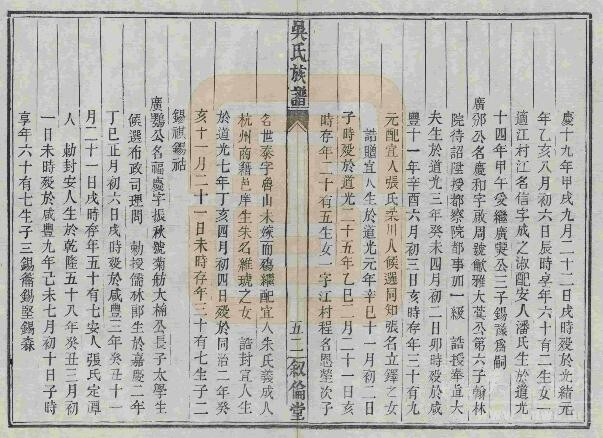 慶十九年甲戌九月二十二日戌時殁於光緒元
年乙亥八月初六日辰時享年六十有二生女一
適江村江名信字成之淑配安人潘氏生於道光
十四年甲午午愛繼廣寀公三子錫蔭為嗣
廣鄈公名慶和字啟周號歗雅大葉公第六子翰林
院待詔陞授都察院都事加一級 誥授奉直大
夫生於道光三年癸未四月初二日卯時殁於咸
豐十一年辛酉六月初三日亥時存年三十有九
元配宜人張氏柔川人候選同知張名立鐸之女
誥贈宜人生於道光元年辛巳十一月初二日
子時殁於道光二十五年乙巳二月二十一日亥
時存年二十有五生女一字江村程名恩塋次子
吳氏族譜
五二 敘倫堂
名世泰字魯山未嫁而殤繼配宜人朱氏義成人
杭州商籍邑庠生朱名維琥之女 誥封宜人生
於道光七年丁亥四月初四日殁於同治二年癸
亥十一月二十一日未時存年三十有七生子二
錫祺錫祜
廣鸚公名福慶字振秋號菊舫大櫋公長子太學生
候選布政司理問 勅授儒林郎生於嘉慶二年
丁巳正月初六日戌時殁於咸豐三年癸丑十一
月二十一日戌時存年五十有七安人張氏定潭
人 勅封安人生於乾隆五十八年癸丑三月初
一日未時殁於咸豐九年己未七月初十日子時
享年六十有七生子三錫齋錫堅錫森